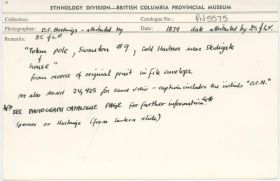 ETHNOLOGY DIVISION—BRITISH COLUMBIA PROVINCIAL MUSEUM
Collection: Catalogue No.: PN 5575
Photographer: O.C. Hastings - attributed by Date: 1879 date attributed by
Remarks:
"Totem pole, Swanton #9, Old Masset near Skidegate
&
house"
from reverse of original print in file envelope
see also 24,425 for same view - caption includes the initials "O.C.H."
SEE PHOTOGRAPH CATALOGUE PAGE for further information.
Spencer or Hastings (from lantern slide)